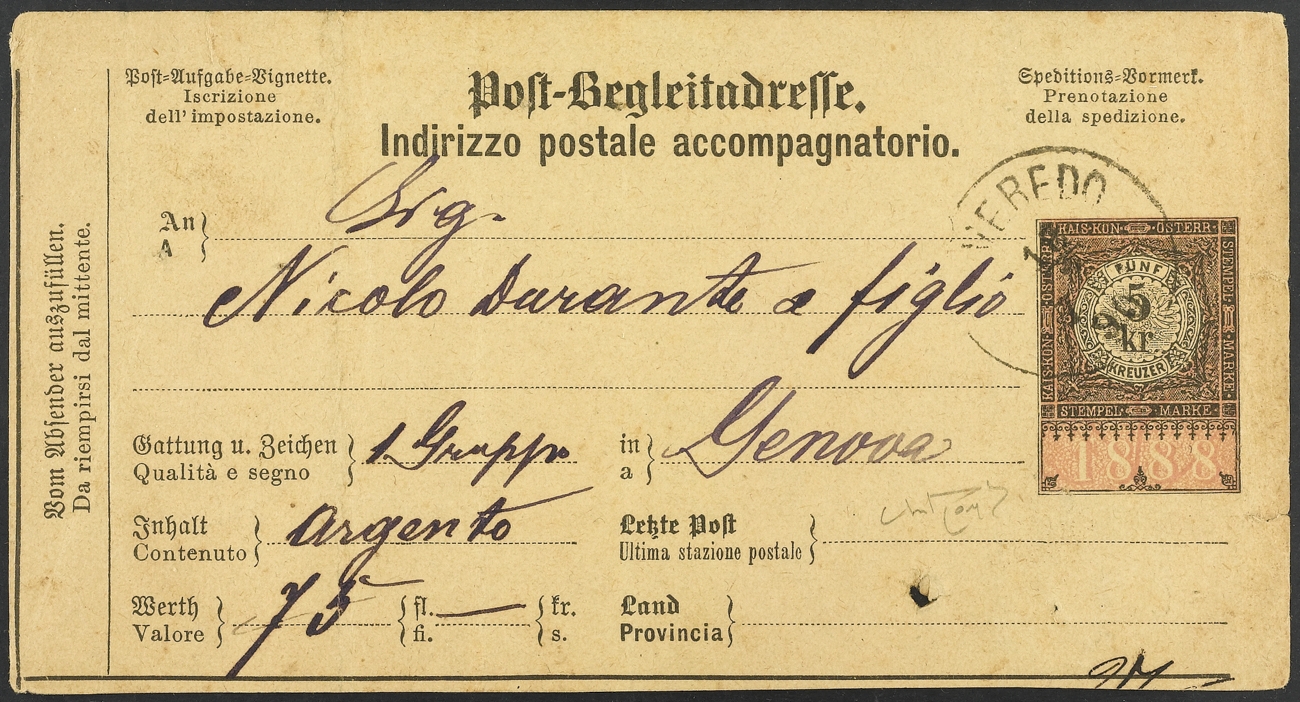 Post-Aufgabe-Vignette.
Iscrizione
dell' impostazione.
Post-Begleitadresse.
Indirizzo postale accompagnatorio.
Speditions-Vormerk.
Prenotazione
della spedizione.
Vom Absender auszufüllen.
Da riempirsi dal mittente.
An
A
Sig.
Nicolo Durante e figlio
Gattung u. Zeichen
Qualità e segno
1 Gruppo
in
a
Genova
Inhalt
Contenuto
argento
Letzte Post
Ultima stazione postale
Werth
Valore
75
fl.
fi.
—
kr.
s.
Land
Provincia
KAIS·KÖN·ÖSTERR·
STEMPEL MARKE
KAIS·KÖN·ÖSTERR
STEMPEL MARKE
FÜNF
5
kr
KREUZER
1888